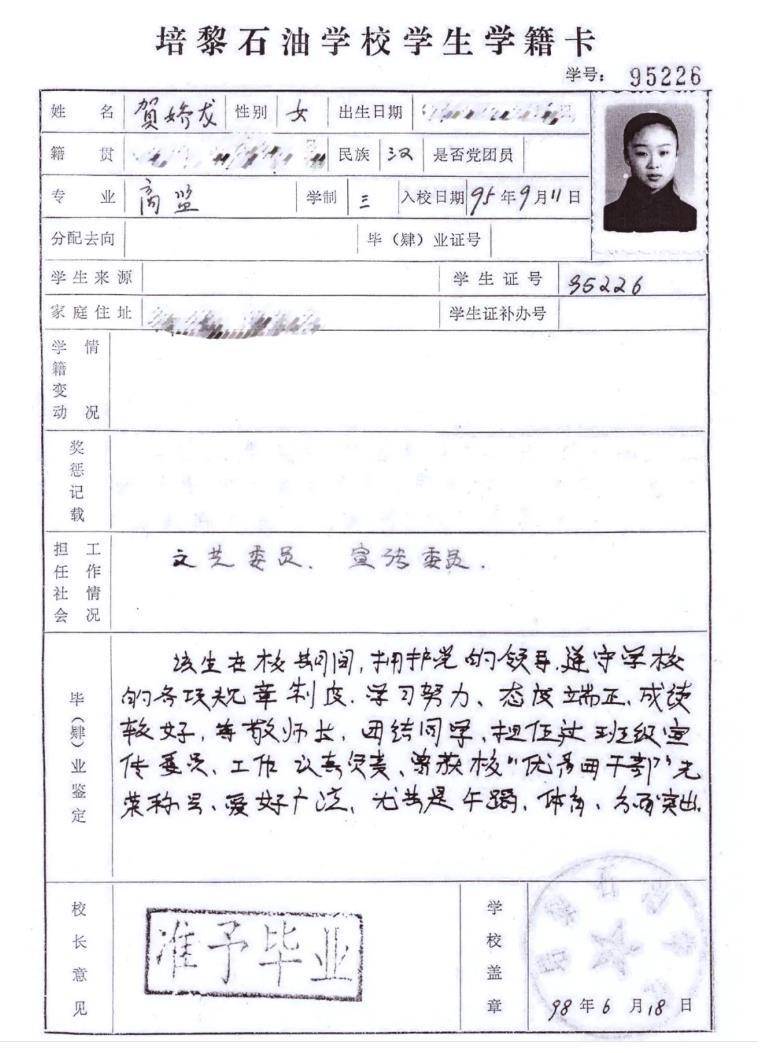 培黎石油学校学生学籍卡
学号: 95226
姓名 賀娇龙 性别 女 出生日期
籍贯 民族 汉 是否党团员
专业 商监 学制 三 入校日期 95年9月11日
分配去向 毕（肄）业证号
学生来源 学生证号 95226
家庭住址 学生证补办号
学籍变动情况
奖惩记载
担任社会工作情况 文艺委员、宣传委员.
毕（肄）业鉴定
该生在校期间,拥护党的领导.遵守学校
的各项规章制度.学习努力、态度端正、成绩
较好,尊敬师长,团结同学,担任过班级宣
传委员、工作认真负责、曾获校"优秀团干部"光
荣称号、爱好广泛,尤其是午蹈、体育、方面突出.
校长意见 准予毕业 学校盖章
98年6月18日